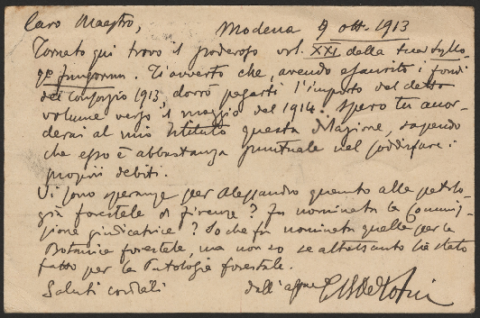 Caro Maestro,
Modena 9 ott. 1913
Tornato qui trovo il poderoso vol. XXI della tua Syllo-
ge Fungorum. Ti avverto che, avendo esauriti i fondi
del Consorzio 1913, dovrò pagarti l'importo del detto
volume verso il maggio del 1914. Spero tu accor-
derai al mio Istituto questa dilazione, sapendo
che esso è abbastanza puntuale nel soddisfare i
proprii debiti.
Vi sono speranze per Alessandro quanto alla patolo-
gia forestale di Firenze? Fu nominata la Commis-
sione giudicatrice? So che fu nominata quella per la
Botanica forestale, ma non so se altrettanto sia stato
fatto per la Patologia forestale.
Saluti cordiali
dall'aff.mo